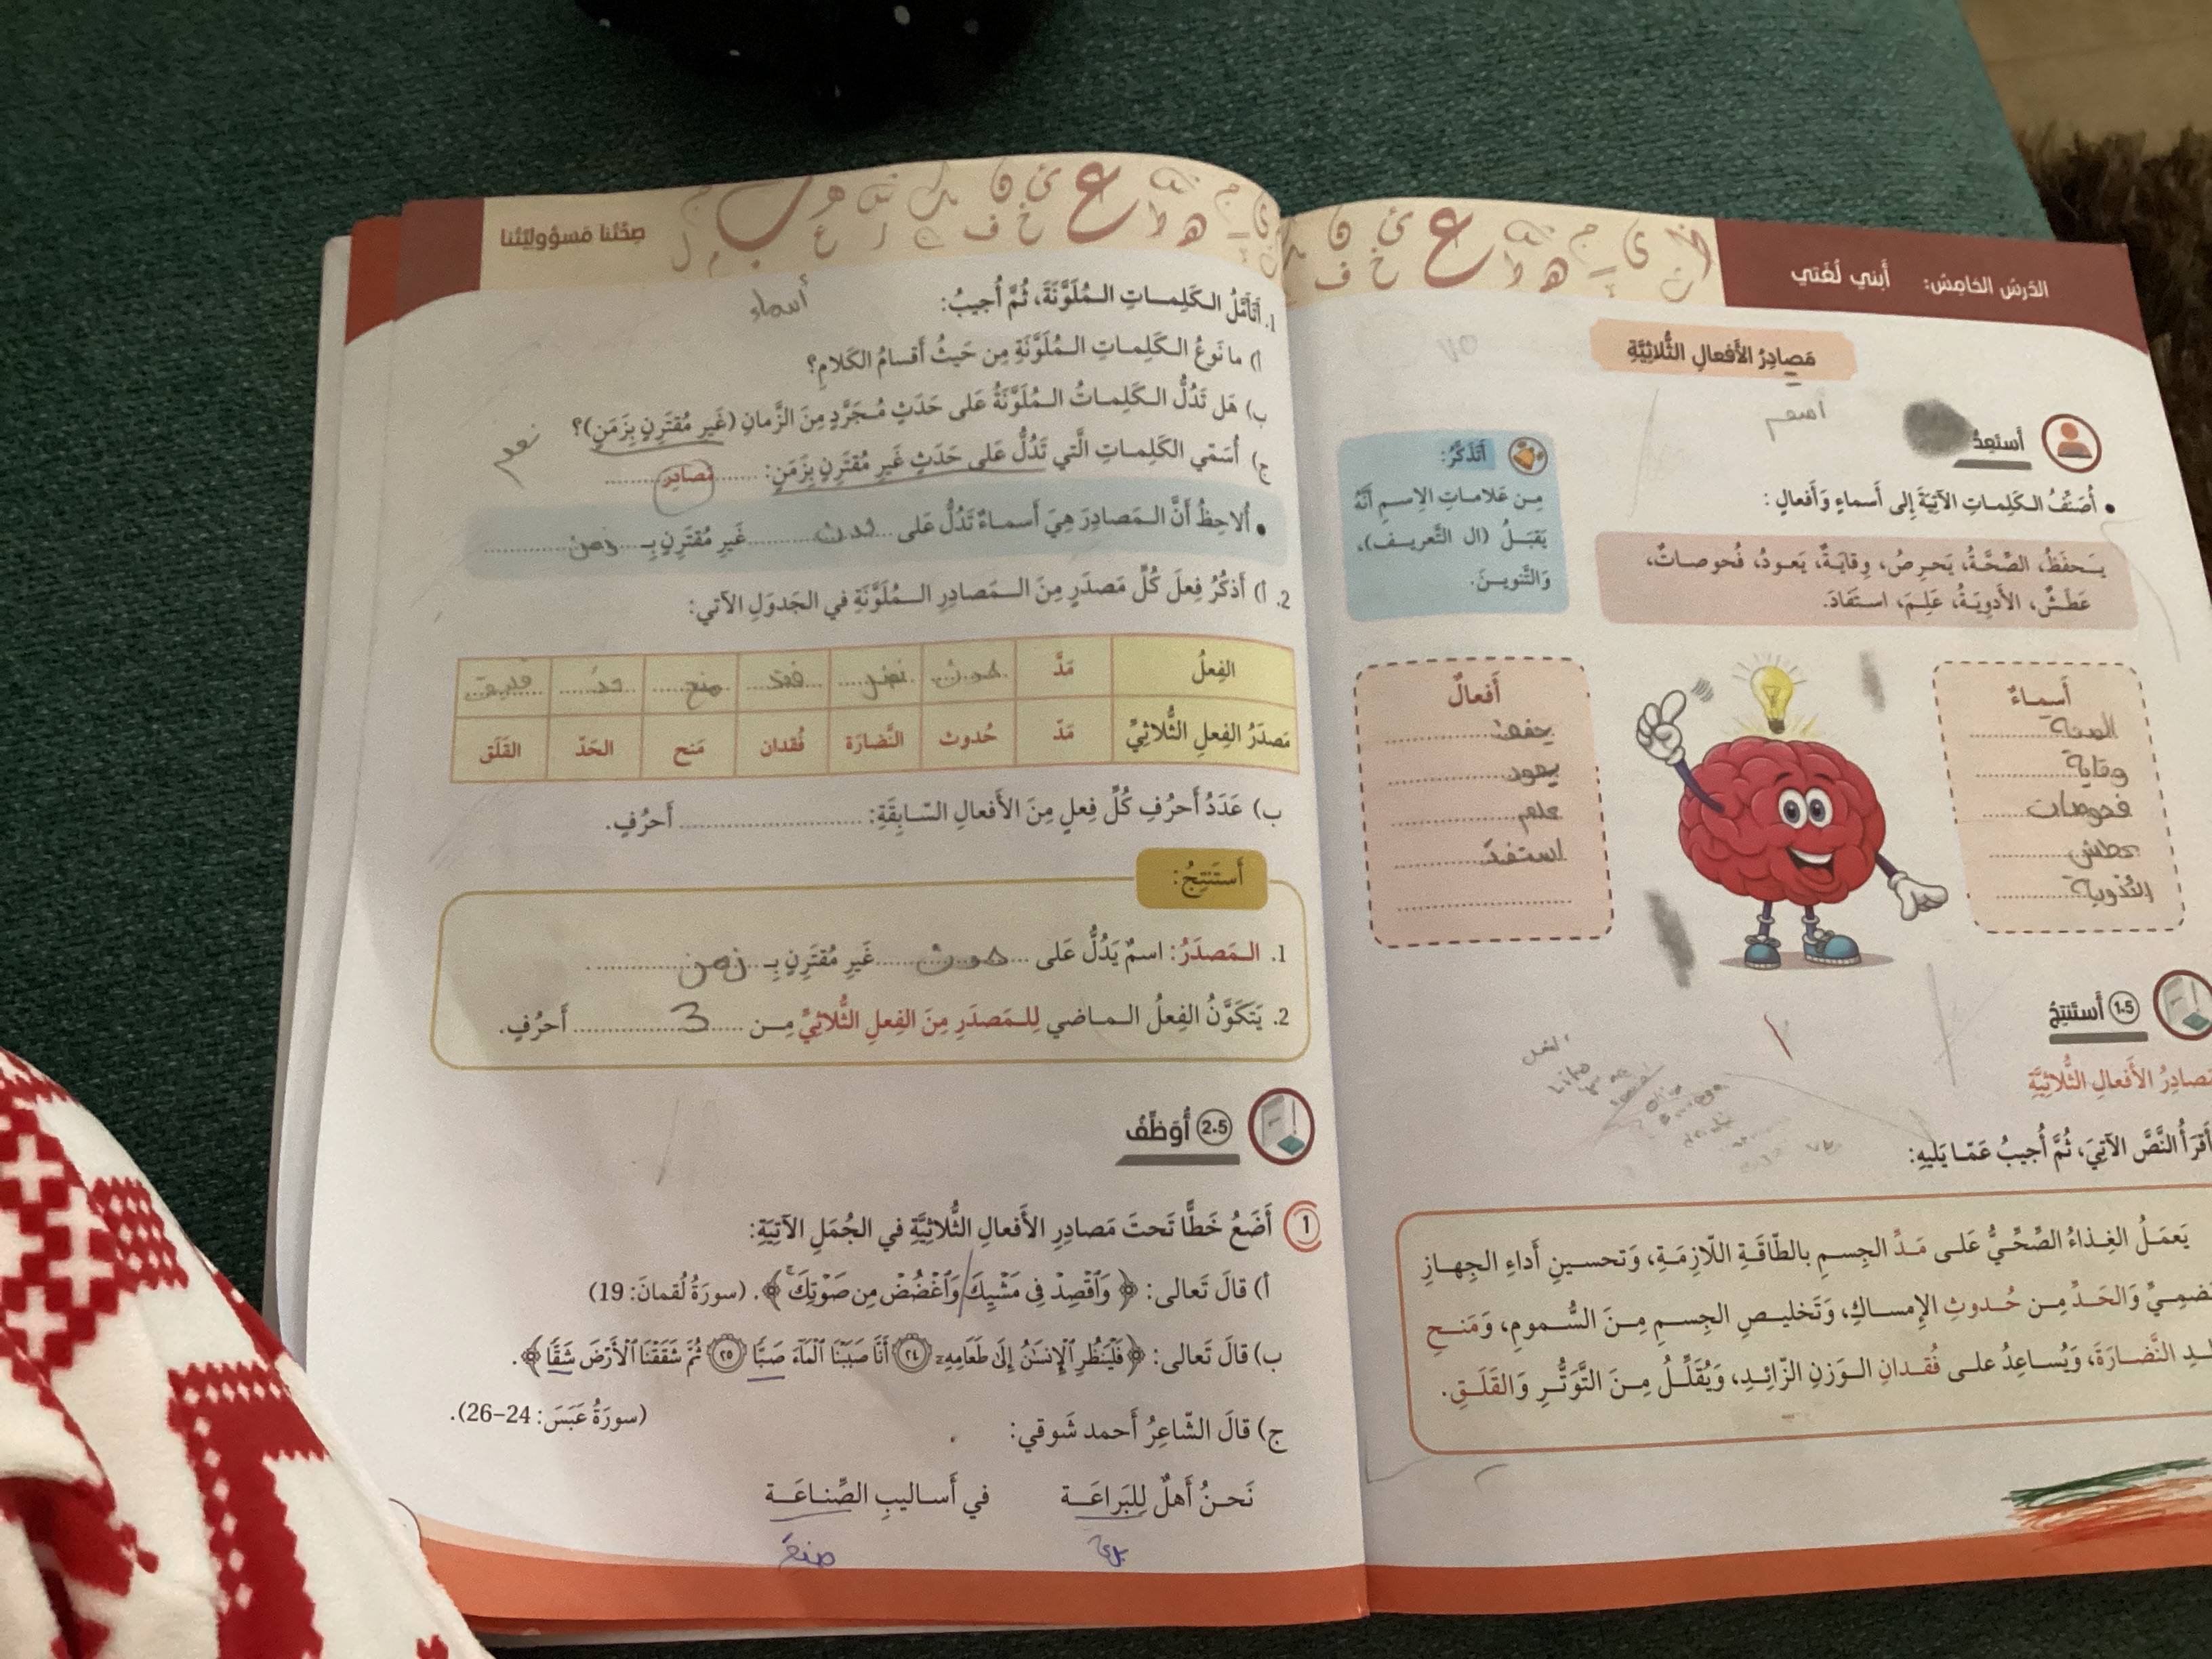 الدَّرسُ الخامِسُ: أَبني لُغَتي
مَصادِرُ الأَفعالِ الثُّلاثِيَّةِ
اسم
أَستَعِدُّ
أُصَنِّفُ الكَلِماتِ الآتِيَةَ إِلى أَسماءٍ وَأَفعالٍ :
يَحفَظُ، الصِّحَّةُ، يَحرِصُ، وِقايَةٌ، يَعودُ، فُحوصاتٌ،
عَطَشٌ، الأَدوِيَةُ، عَلِمَ، استَفادَ.
أَتَذَكَّرُ:
مِن عَلاماتِ الِاسمِ أَنَّهُ
يَقبَلُ (ال التَّعريف)،
وَالتَّنوينَ.
أَسماءٌ
الصحة
وقاية
فحوصات
عطش
أَفعالٌ
يحفظ
يعود
علم
1.5 أَستَنتِجُ
مَصادِرُ الأَفعالِ الثُّلاثِيَّةِ
أَقرَأُ النَّصَّ الآتِيَ، ثُمَّ أُجيبُ عَمّا يَليهِ:
يَعمَلُ الغِذاءُ الصِّحِّيُّ عَلى مَدِّ الجِسمِ بِالطّاقَةِ اللّازِمَةِ، وَتحسينِ أَداءِ الجِهازِ
وَالحَدِّ مِن حُدوثِ الإِمساكِ، وَتَخليصِ الجِسمِ مِنَ السُّمومِ، وَمَنحِ
النَّضارَةَ، وَيُساعِدُ على فُقدانِ الوَزنِ الزّائِدِ، وَيُقَلِّلُ مِنَ التَّوَتُّرِ وَالقَلَقِ.
صِحَّتُنا مَسؤوليَّتُنا
1. أَتَأَمَّلُ الكَلِماتِ المُلَوَّنَةَ، ثُمَّ أُجيبُ:
أسماء
أ) ما نَوعُ الكَلِماتِ المُلَوَّنَةِ مِن حَيثُ أَقسامُ الكَلامِ؟
ب) هَل تَدُلُّ الكَلِماتُ المُلَوَّنَةُ عَلى حَدَثٍ مُجَرَّدٍ مِنَ الزَّمانِ (غَيرِ مُقتَرِنٍ بِزَمَنٍ)؟
نعم
ج) أُسَمّي الكَلِماتِ الَّتي تَدُلُّ عَلى حَدَثٍ غَيرِ مُقتَرِنٍ بِزَمَنٍ: مَصادِرَ
أُلاحِظُ أَنَّ المَصادِرَ هِيَ أَسماءٌ تَدُلُّ عَلى حدث غَيرِ مُقتَرِنٍ بِـ زمن
2. أ) أَذكُرُ فِعلَ كُلِّ مَصدَرٍ مِنَ المَصادِرِ المُلَوَّنَةِ في الجَدوَلِ الآتي:
الفِعلُ مَدَّ حدث نضر فقد منح حدّ
مَصدَرُ الفِعلِ الثُّلاثِيِّ مَدّ حُدوث النَّضارَة فُقدان مَنح الحَدّ القَلَق
ب) عَدَدُ أَحرُفِ كُلِّ فِعلٍ مِنَ الأَفعالِ السّابِقَةِ: أَحرُفٍ.
أَستَنتِجُ:
1. المَصدَرُ: اسمٌ يَدُلُّ عَلى حدث غَيرِ مُقتَرِنٍ بِـ زمن
2. يَتَكَوَّنُ الفِعلُ الماضي لِلمَصدَرِ مِنَ الفِعلِ الثُّلاثِيِّ مِن 3 أَحرُفٍ.
2.5 أُوَظِّفُ
1 أَضَعُ خَطًّا تَحتَ مَصادِرِ الأَفعالِ الثُّلاثِيَّةِ في الجُمَلِ الآتِيَةِ:
أ) قالَ تَعالى: ﴿وَٱقۡصِدۡ فِي مَشۡيِكَ وَٱغۡضُضۡ مِن صَوۡتِكَۚ﴾. (سورَةُ لُقمانَ: 19)
ب) قالَ تَعالى: ﴿فَلۡيَنظُرِ ٱلۡإِنسَٰنُ إِلَىٰ طَعَامِهِۦٓ ٢٤ أَنَّا صَبَبۡنَا ٱلۡمَآءَ صَبّٗا ٢٥ ثُمَّ شَقَقۡنَا ٱلۡأَرۡضَ شَقّٗا﴾.
(سورَةُ عَبَسَ: 24–26).
ج) قالَ الشّاعِرُ أَحمد شَوقي:
نَحنُ أَهلٌ لِلبَراعَة في أَساليبِ الصِّناعَة
صنع